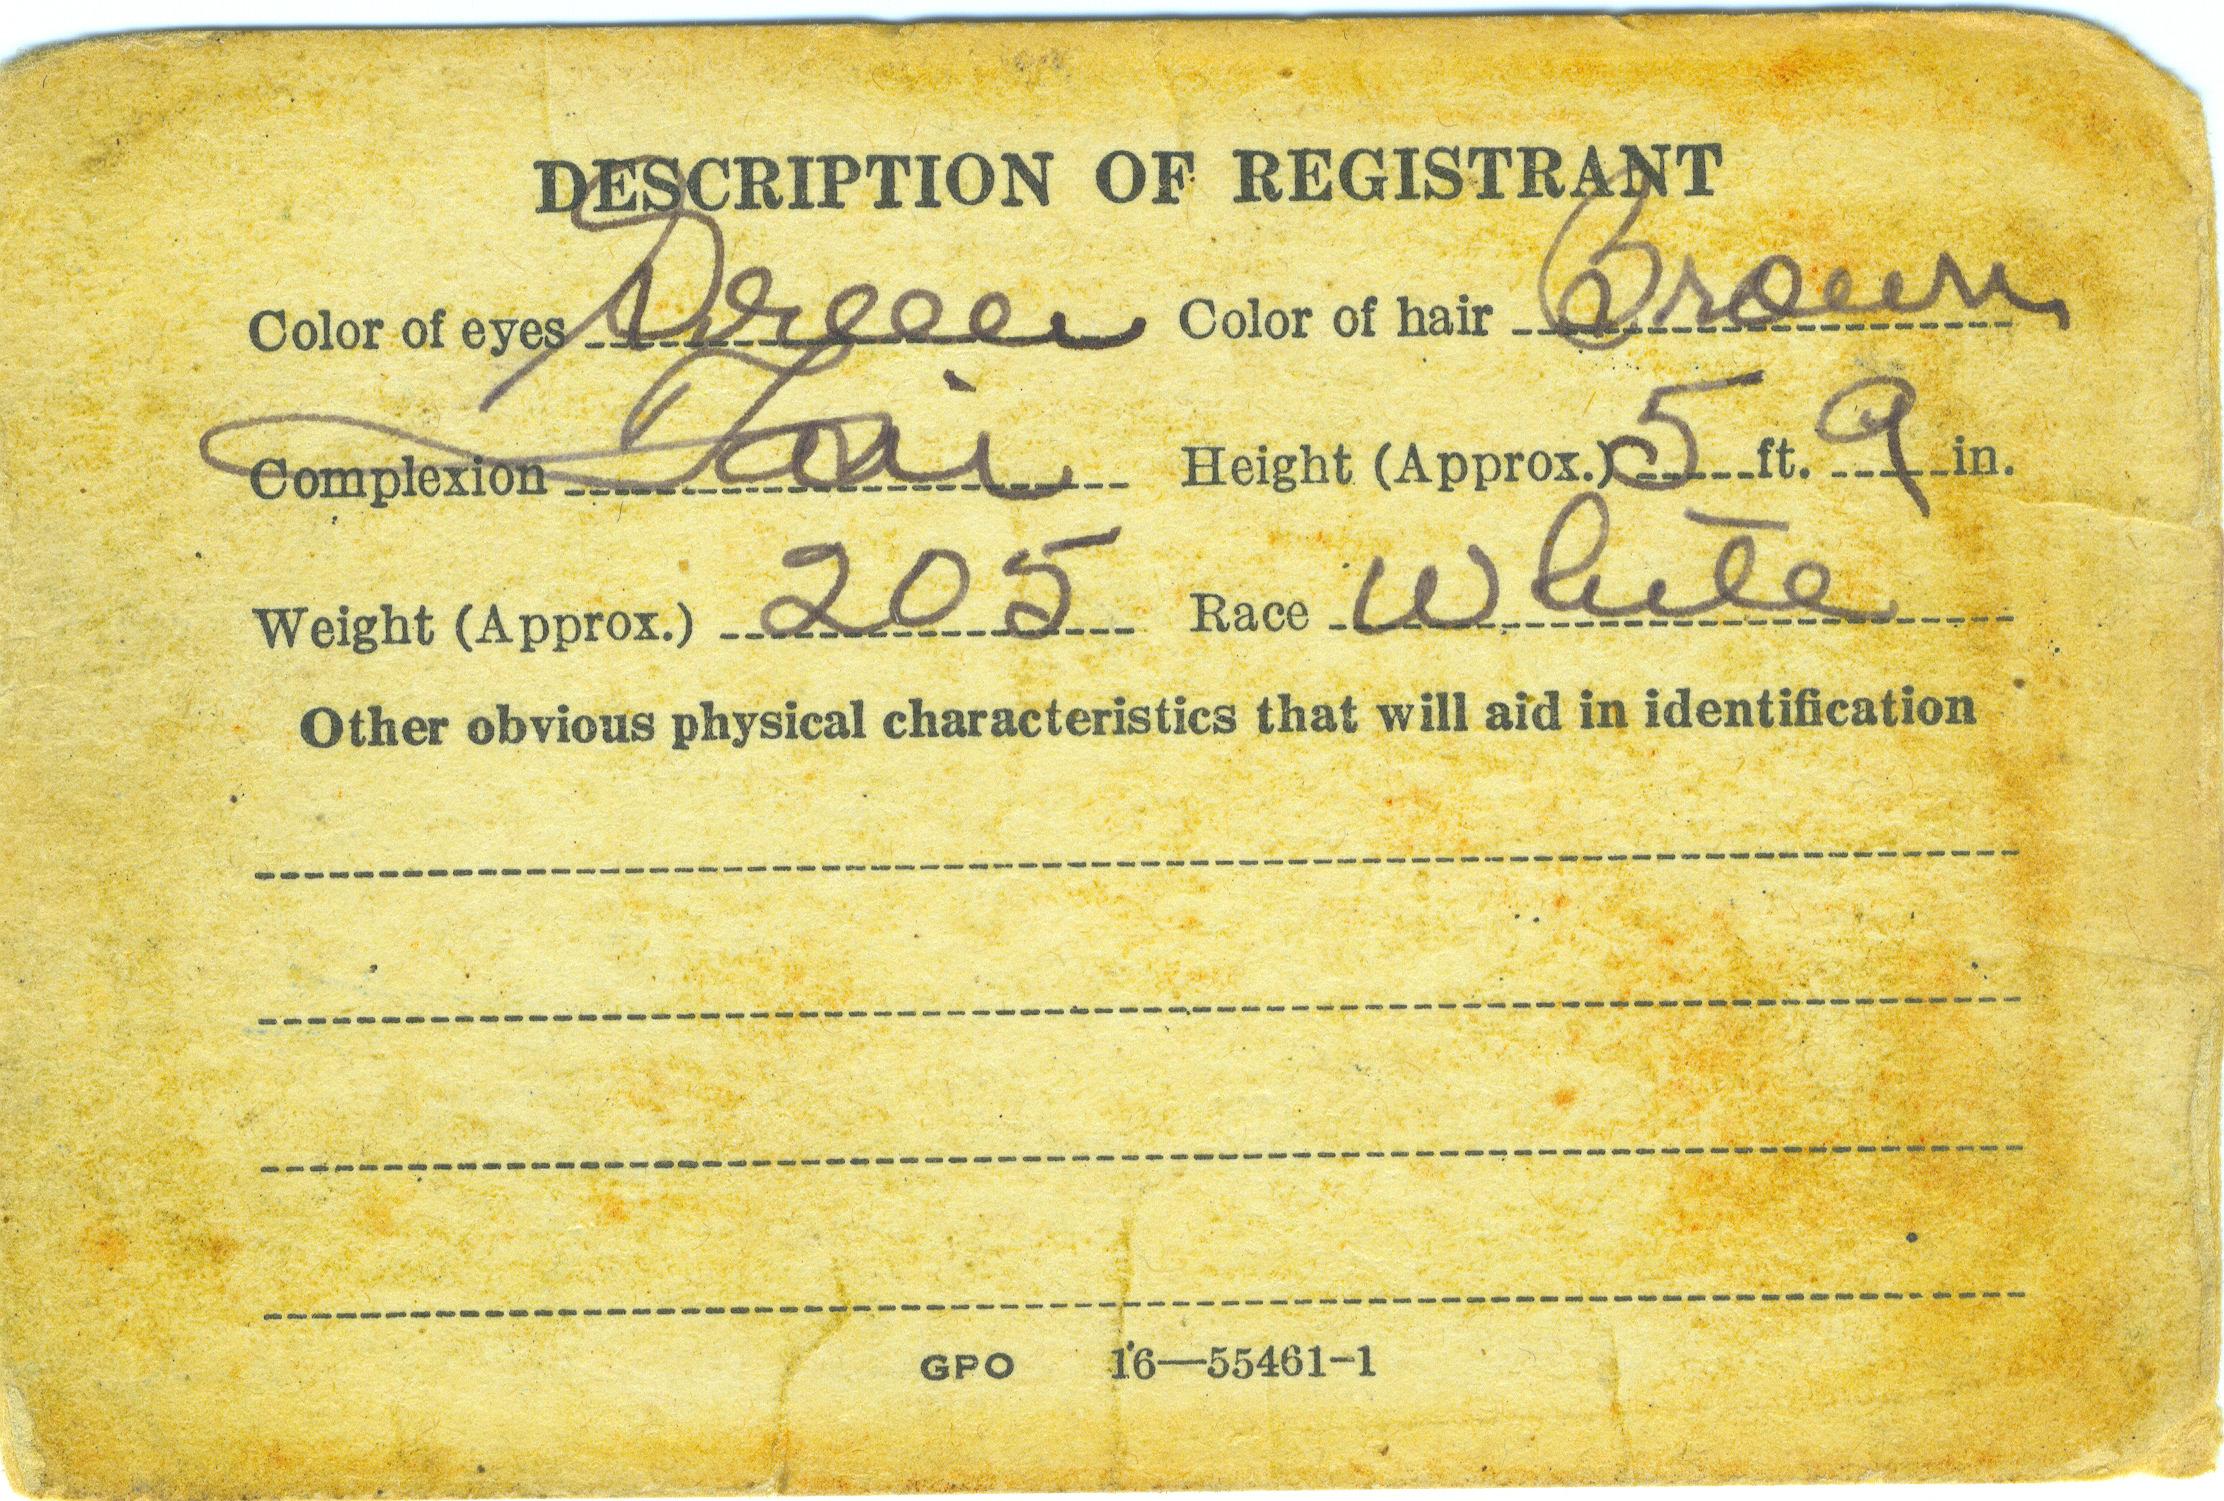 DESCRIPTION OF REGISTRANT
Color of eyes Green Color of hair Brown
Complexion Fair Height (Approx.) 5 ft. 9 in.
Weight (Approx.) 205 Race White
Other obvious physical characteristics that will aid in identification
GPO 16—55461-1